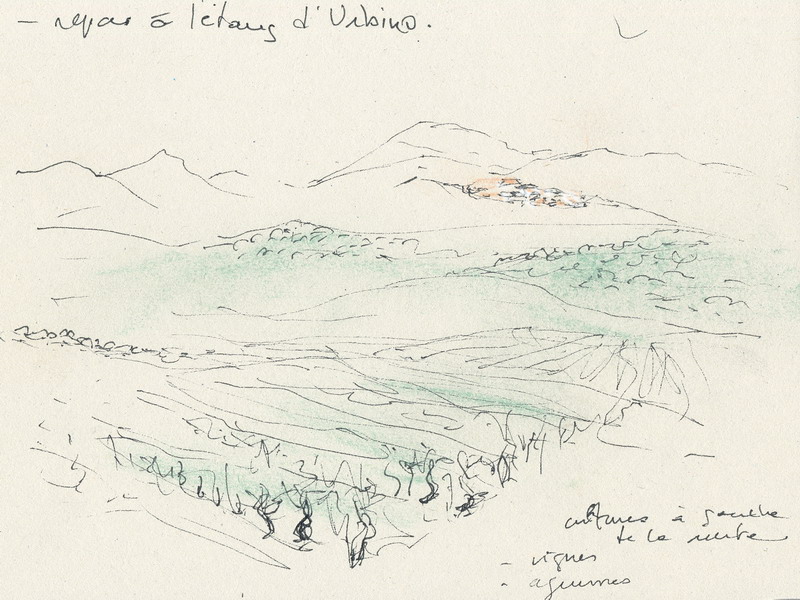 - repas à l'étang d'Urbino.
cultures à gauche
de la route
- vignes
- agrumes